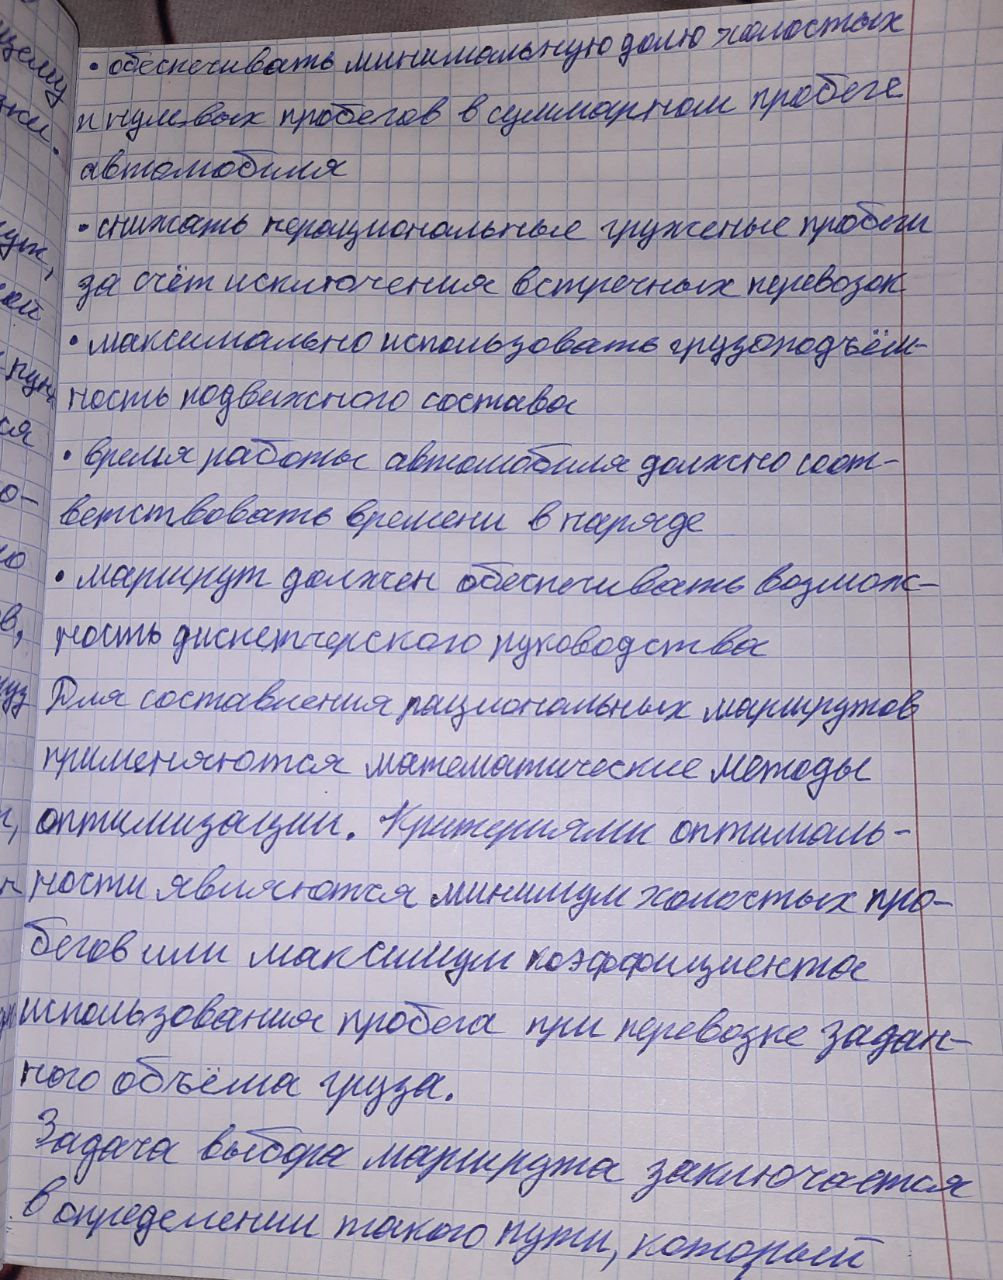 • обеспечивать минимальную долю холостых
и нулевых пробегов в суммарном пробеге
автомобиля
• снижать нерациональные груженые пробеги
за счёт исключения встречных перевозок
• максимально использовать грузоподъём-
ность подвижного состава
• время работы автомобиля должно соот-
ветствовать времени в наряде
• маршрут должен обеспечивать возмож-
ность диспетчерского руководства
Для составления рациональных маршрутов
применяются математические методы
оптимизации. Критериями оптималь-
ности являются минимум холостых про-
бегов или максимум коэффициента
использования пробега при перевозке задан-
ного объёма груза.
Задача выбора маршрута заключается
в определении такого пути, который